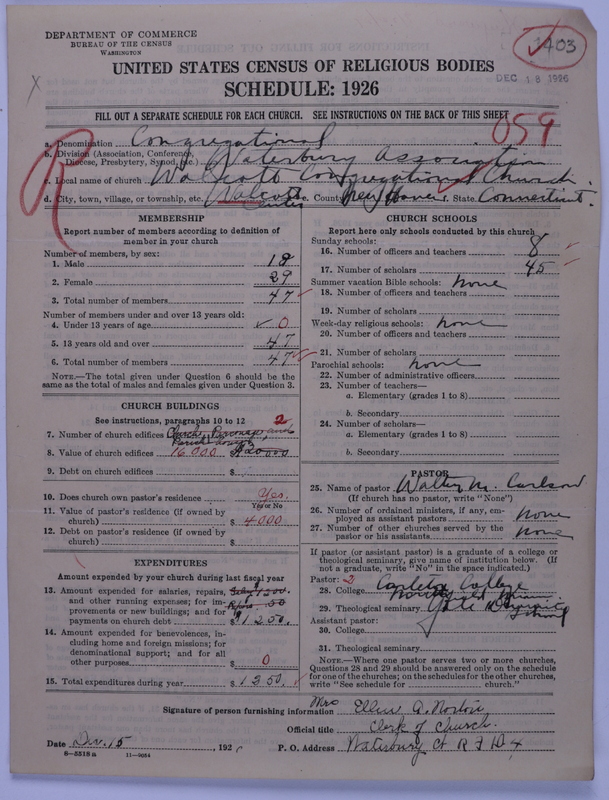 DEPARTMENT OF COMMERCE
BUREAU OF THE CENSUS
WASHINGTON
1403
DEC 18 1926
UNITED STATES CENSUS OF RELIGIOUS BODIES
SCHEDULE: 1926
FILL OUT A SEPARATE SCHEDULE FOR EACH CHURCH. SEE INSTRUCTIONS ON THE BACK OF THIS SHEET
059
R
a. Denomination Congregational
b. Division (Association, Conference, Diocese, Presbytery, Synod, etc.) Waterbury Association
c. Local name of church Walcott Congregational Church
d. City, town, village, or township, etc. Walcott Center e. County New Haven f. State Connecticut.
MEMBERSHIP
Report number of members according to definition of
member in your church
Number of members, by sex:
1. Male 18
2. Female 29
3. Total number of members 47
Number of members under and over 13 years old:
4. Under 13 years of age 0
5. 13 years old and over 47
6. Total number of members 47
NOTE.—The total given under Question 6 should be the
same as the total of males and females given under Question 3.
CHURCH BUILDINGS
See instructions, paragraphs 10 to 12 2
7. Number of church edifices Church, Parsonage, and
8. Value of church edifices 16000 $20000
9. Debt on church edifices $
10. Does church own pastor's residence Yes.
Yes or No
11. Value of pastor's residence (if owned by
church) $4000
12. Debt on pastor's residence (if owned by
church) $
EXPENDITURES
Amount expended by church during last fiscal year
13. Amount expended for salaries, repairs,
and other running expenses; for im-
provements or new buildings; and for
payments on church debt $1250.
14. Amount expended for benevolences, in-
cluding home and foreign missions; for
denominational support; and for all
other purposes $ 0
15. Total expenditures during year $1250.
CHURCH SCHOOLS
Report here only schools conducted by this church
Sunday schools:
16. Number of officers and teachers 8
17. Number of scholars 45
Summer vacation Bible schools: none
18. Number of officers and teachers
19. Number of scholars
Week-day religious schools: none
20. Number of officers and teachers
21. Number of scholars
Parochial schools: none
22. Number of administrative officers
23. Number of teachers—
a. Elementary (grades 1 to 8)
b. Secondary
24. Number of scholars—
a. Elementary (grades 1 to 8)
b. Secondary
PASTOR
25. Name of pastor Walter M. Carlson
(If church has no pastor, write "None")
26. Number of ordained ministers, if any, em-
ployed as assistant pastors none
27. Number of other churches served by the
pastor or his assistants none
If pastor (or assistant pastor) is a graduate of a college or
theological seminary, give name of institution below. (If
not a graduate, write "No" in the space indicated.)
Pastor: 2
28. College Carleton College
Northfield Minn
29. Theological seminary Yale Divinity
School
Assistant pastor:
30. College
31. Theological seminary
NOTE.—Where one pastor serves two or more churches,
Questions 28 and 29 should be answered only on the schedule
for one of the churches; on the schedules for the other churches,
write "See schedule for church."
Signature of person furnishing information Mrs Ellen A. Norton
Official title Clerk of Church.
Date Dec. 15, 192 P. O. Address Waterbury Ct R F D 4
8-5518a 11-9054